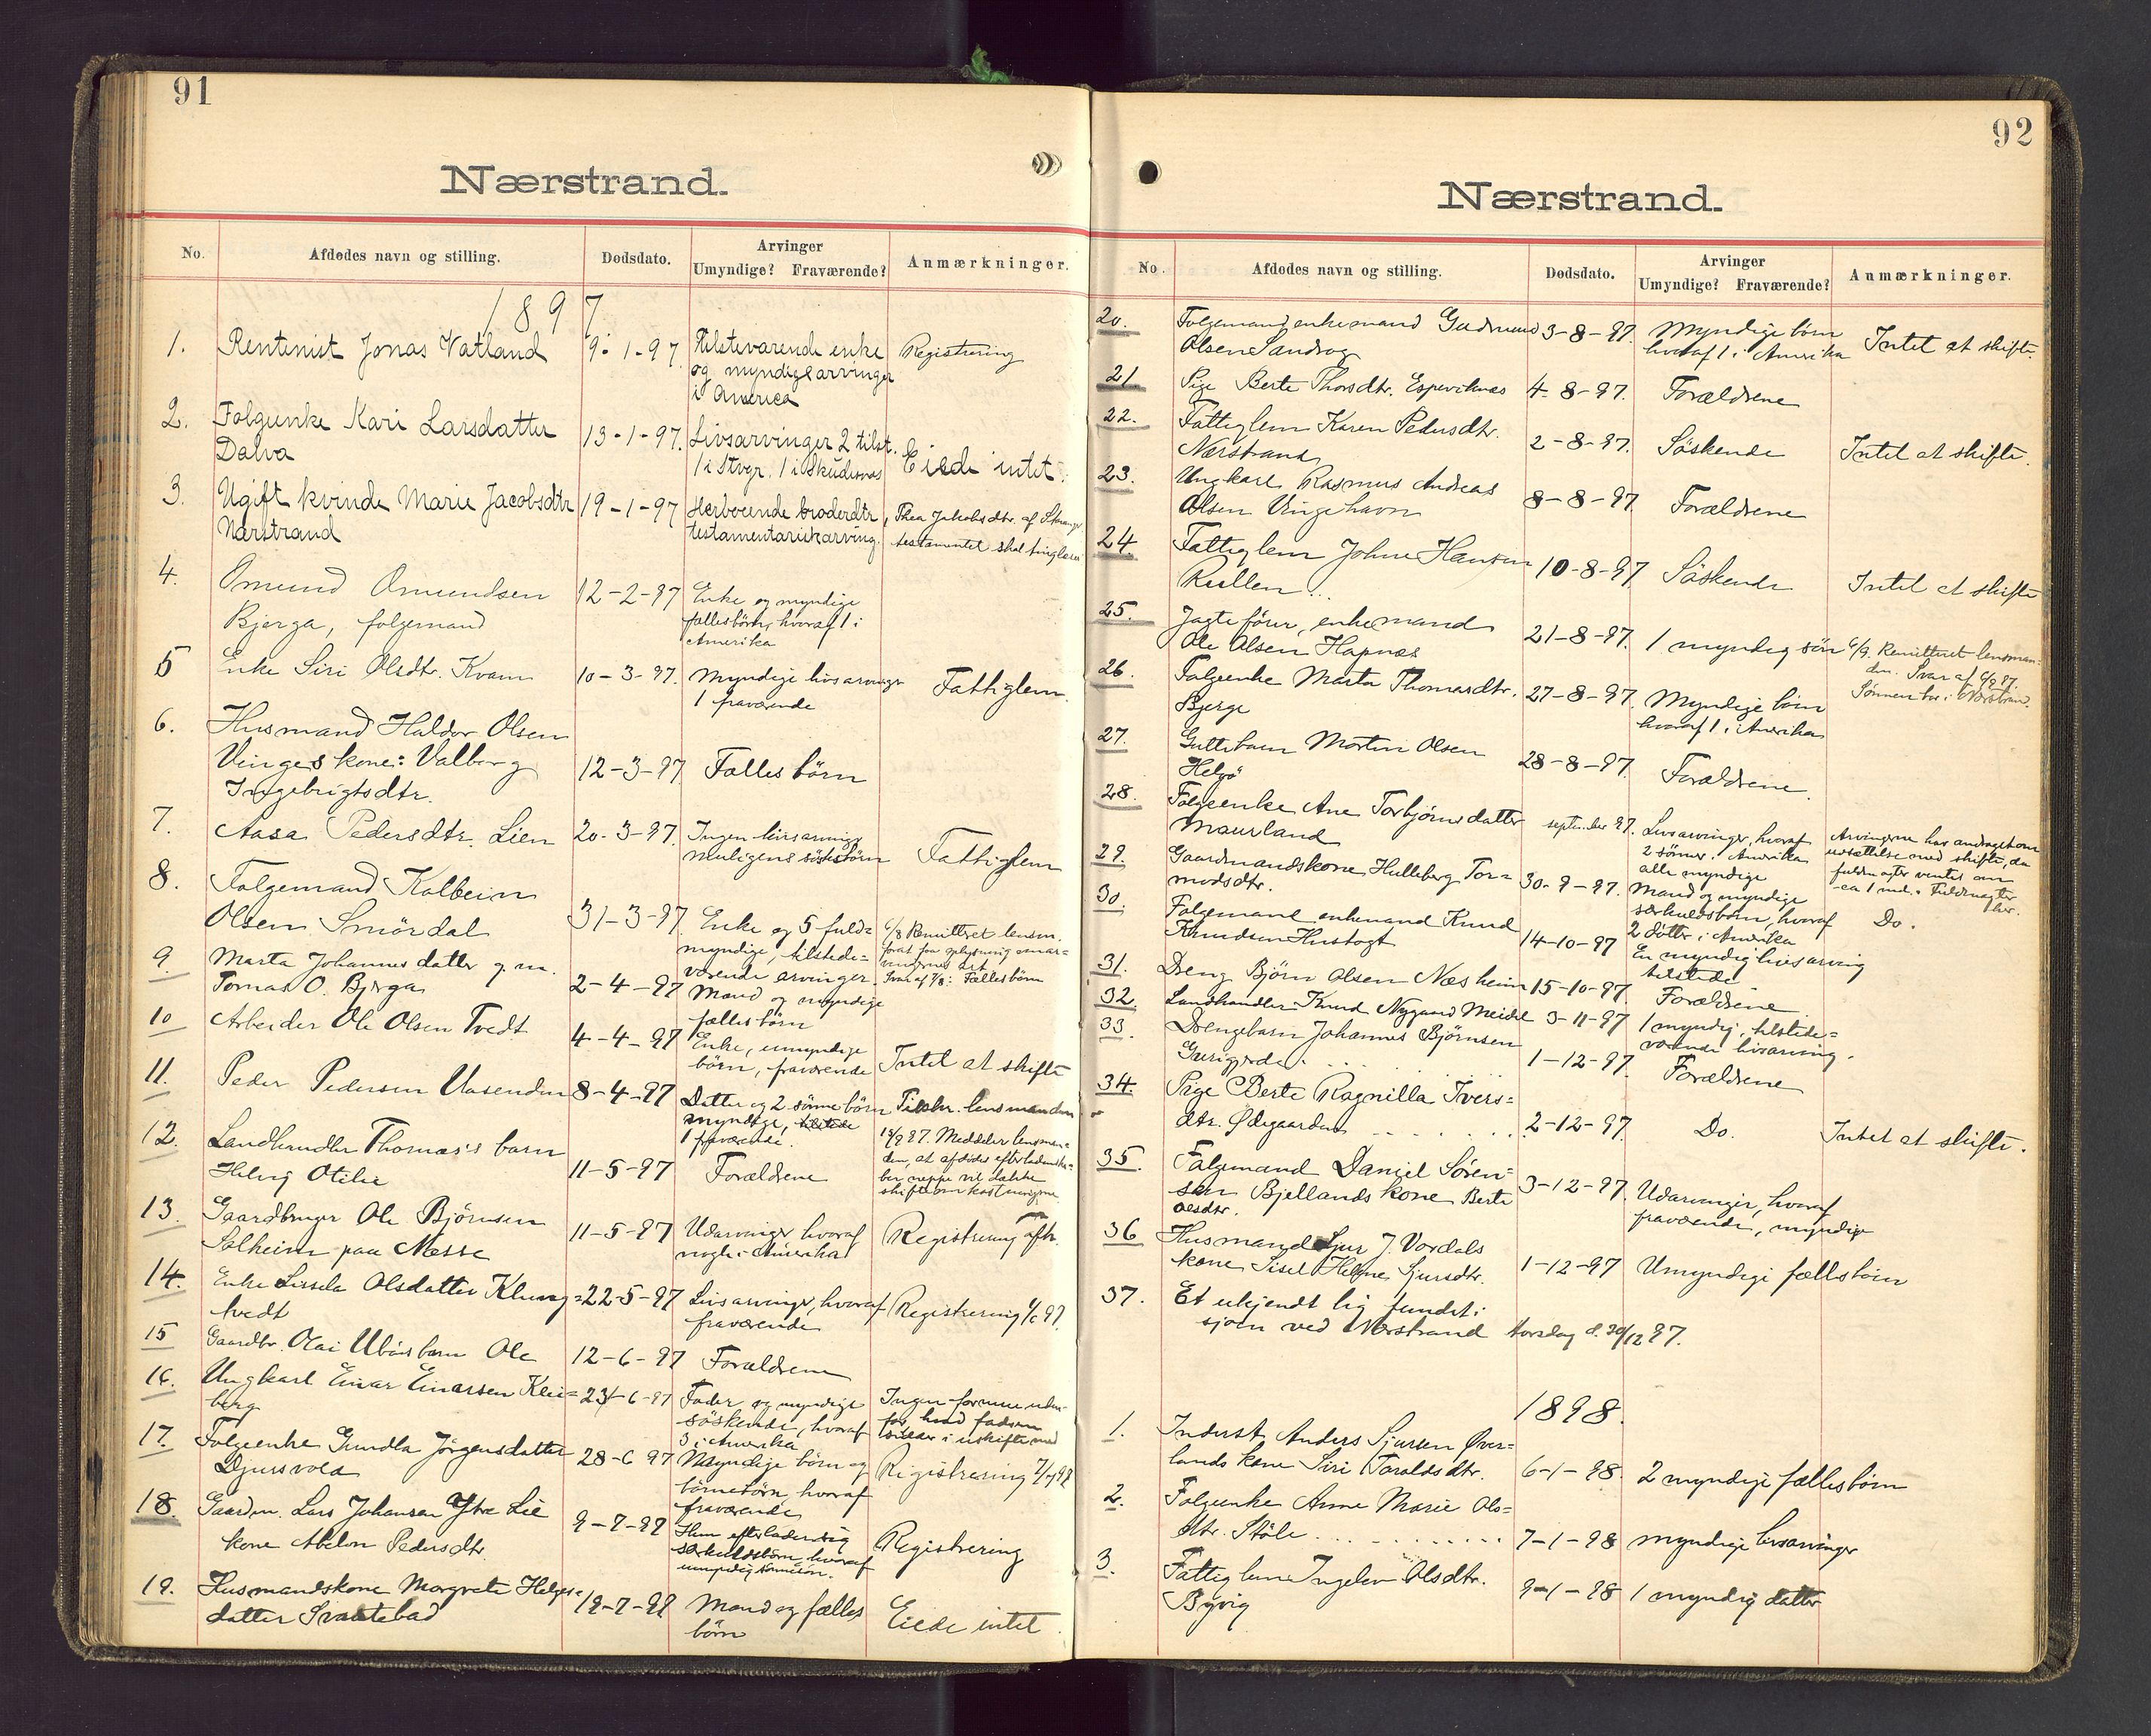 91
Nærstrand.
No. Afdødes navn og stilling. Dødsdato. Arvinger Umyndige? Fraværende? Anmærkninger.
1897
1. Rentenist Jonas Vatland 9-1-97 Tilsteværende enke Registrering
og myndige arvinger
i America
2. Folgeenke Kari Larsdatter 13-1-97. Livsarvinger 2 tilst. Eiede intet.
Dalva 1 i Stvgr. 1 i Skudesnæs
3. Ugift kvinde Marie Jacobsdtr 19-1-97 Herboende broderdtr, Thea Jakobsdtr. af
Nærstrand testamentarisk arving. testamentet skal tinglæses
4. Omund Omundsen 12-2-97 Enke og myndige
Bjerga, folgemand fællesbörn, hvoraf 1 i
Amerika
5 Enke Siri Olsdtr. Kvam 10-3-97. Myndige livsarvinger Fattiglem.
1 fraværende
6. Husmand Haldor Olsen
Vinges kone: Valborg 12-3-97 Fælles börn
Ingebrigtsdtr.
7. Aasa Pedersdtr. Lien 20-3-97. Ingen livsarving Fattiglem
muligens söskebörn
8. Folgemand Kolbein
Olsen Smördal 31-3-97. Enke og 5 fuld= 6/8 Remitteret lensm.
myndige, tilstede=
værende arvinger. Svar af 9/8: Fælles börn
9. Marta Johannesdatter g. m.
Tomas O. Bjerga 2-4-97 Mand og myndige
fælles börn
10 Arbeider Ole Olsen Tvedt 4-4-97 Enke, umyndige
börn, fraværende Intet at skifte
11. Peder Pedersen Aasenden 8-4-97 Datter og 2 sönne börn Tilskr. lensmanden
myndige, tilstede
1 fraværende. 15/9 97. Meddeler lensman=
12. Landhandler Thomas's barn den, at afdödes efterladenska=
Helvig Otilie 11-5-97 Forældrene ber neppe vil dække
skifteomkostningerne
13. Gaardbruger Ole Björnsen
Solheim paa Messe 11-5-97 Udarvinger hvoraf Registrering afh.
nogle i Amerika
14. Enke Lissela Olsdatter Klung= 22-5-97 Livsarvinger, hvoraf Registrering 1/6 97.
tvedt fraværende
15 Gaardbr. Olai Ubös barn Ole 12-6-97 Forældrene
16. Ungkarl Einar Einarsen Klei= 23-6-97 Fader og myndige Ingen formue uden=
berg söskende, hvoraf for, hvad faderen
3 i Amerika sidder i uskifte med
17. Folgeenke Gundla Jörgensdatter 28-6 97 Myndige börn og Registrering
Djursvold börnebörn hvoraf
fraværende
18. Gaardm. Lars Johansen Ytre Lie 9-7-97 Hun efterlader sig Registrering
kone Abelon Pedersdtr. særkuldsbörn hvoraf
umyndig
19. Husmandskone Margrete Helges=
datter Svartebad 19-7-97 Mand og fælles Eiede intet.
börn
92
Nærstrand.
No. Afdødes navn og stilling. Dødsdato. Arvinger Umyndige? Fraværende? Anmærkninger.
20. Folgemand enkemand Gudmund 3-8-97. Myndige börn Intet at skifte.
Olsen Sandvog hvoraf 1 i Amerika
21. Pige Berte Thorsdtr. Espeviknæs 4-8-97. Forældrene
22. Fattiglem Karen Pedersdtr.
Nærstrand 2-8-97. Söskende Intet at skifte.
23. Ungkarl Rasmus Andreas
Olsen Vingehavn 8-8-97 Forældrene
24. Fattiglem Johne Hansen
Rullen 10-8-97 Söskende Intet at skifte
25. Jagtefører, enkemand
Ole Olsen Hapnæs 21-8-97. 1 myndig sön 6/9. Remitteret lensman=
den. Svar af 9/9 97.
26. Folgeenke Marta Thomasdtr. 27-8-97. Myndige börn Sönnen bor i Nærstrand.
Bjerge hvoraf 1 i Amerika
27. Guttebarn Martin Olsen
Helgö 28-8-97. Forældrene.
28. Folgeenke Ane Torbjörnsdatter september 97. Livsarvinger, hvoraf Arvingerne har andraget om
Maurland 2 sönner i Amerika udsættelse med skifte, da
alle myndige fuldmagter ventes om
ca 1 md.
29. Gaardmandskone Hulleberg Tor=
modsdtr. 30-9-97. Mand og myndige
særkuldsbörn, hvoraf Do.
2 døttr. i Amerika
30. Folgemand enkemand Knud
Knudsen Hustoft 14-10-97 En myndig livsarving
tilstede
31. Dreng Björn Olsen Næsheim 15-10-97. Forældrene
32. Landhandler Knud Nygaard Meidel 3-11-97 1 myndig, tilstede=
værende livsarving.
33. Drengebarn Johannes Björnsen
1-12-97. Forældrene
34. Pige Berte Ragnilla Ivers=
dtr. Ødegaarden 2-12-97. Do. Intet at skifte.
35. Folgemand Daniel Sören=
sen Bjellands kone Berte 3-12-97. Udarvinger, hvoraf
Olsdtr. fraværende, myndige
36 Husmand Sjur J. Vordals
kone Sisel Helene Sjursdtr. 1-12-97 Umyndige fællesbörn
37. Et ukjendt lig fundet i
sjøen ved Nærstrand torsdag d. 30/12 97.
1898.
1. Inderst Anders Sjursen Øver=
lands kone Siri Taraldsdtr. 6-1-98. 2 myndige fællesbörn
2. Folgeenke Anne Marie Ols=
dtr. Stöle 7-1-98 myndige livsarvinger
3. Fattiglem Ingelev Olsdtr.
Bgvig 9-1-98 1 myndig datter